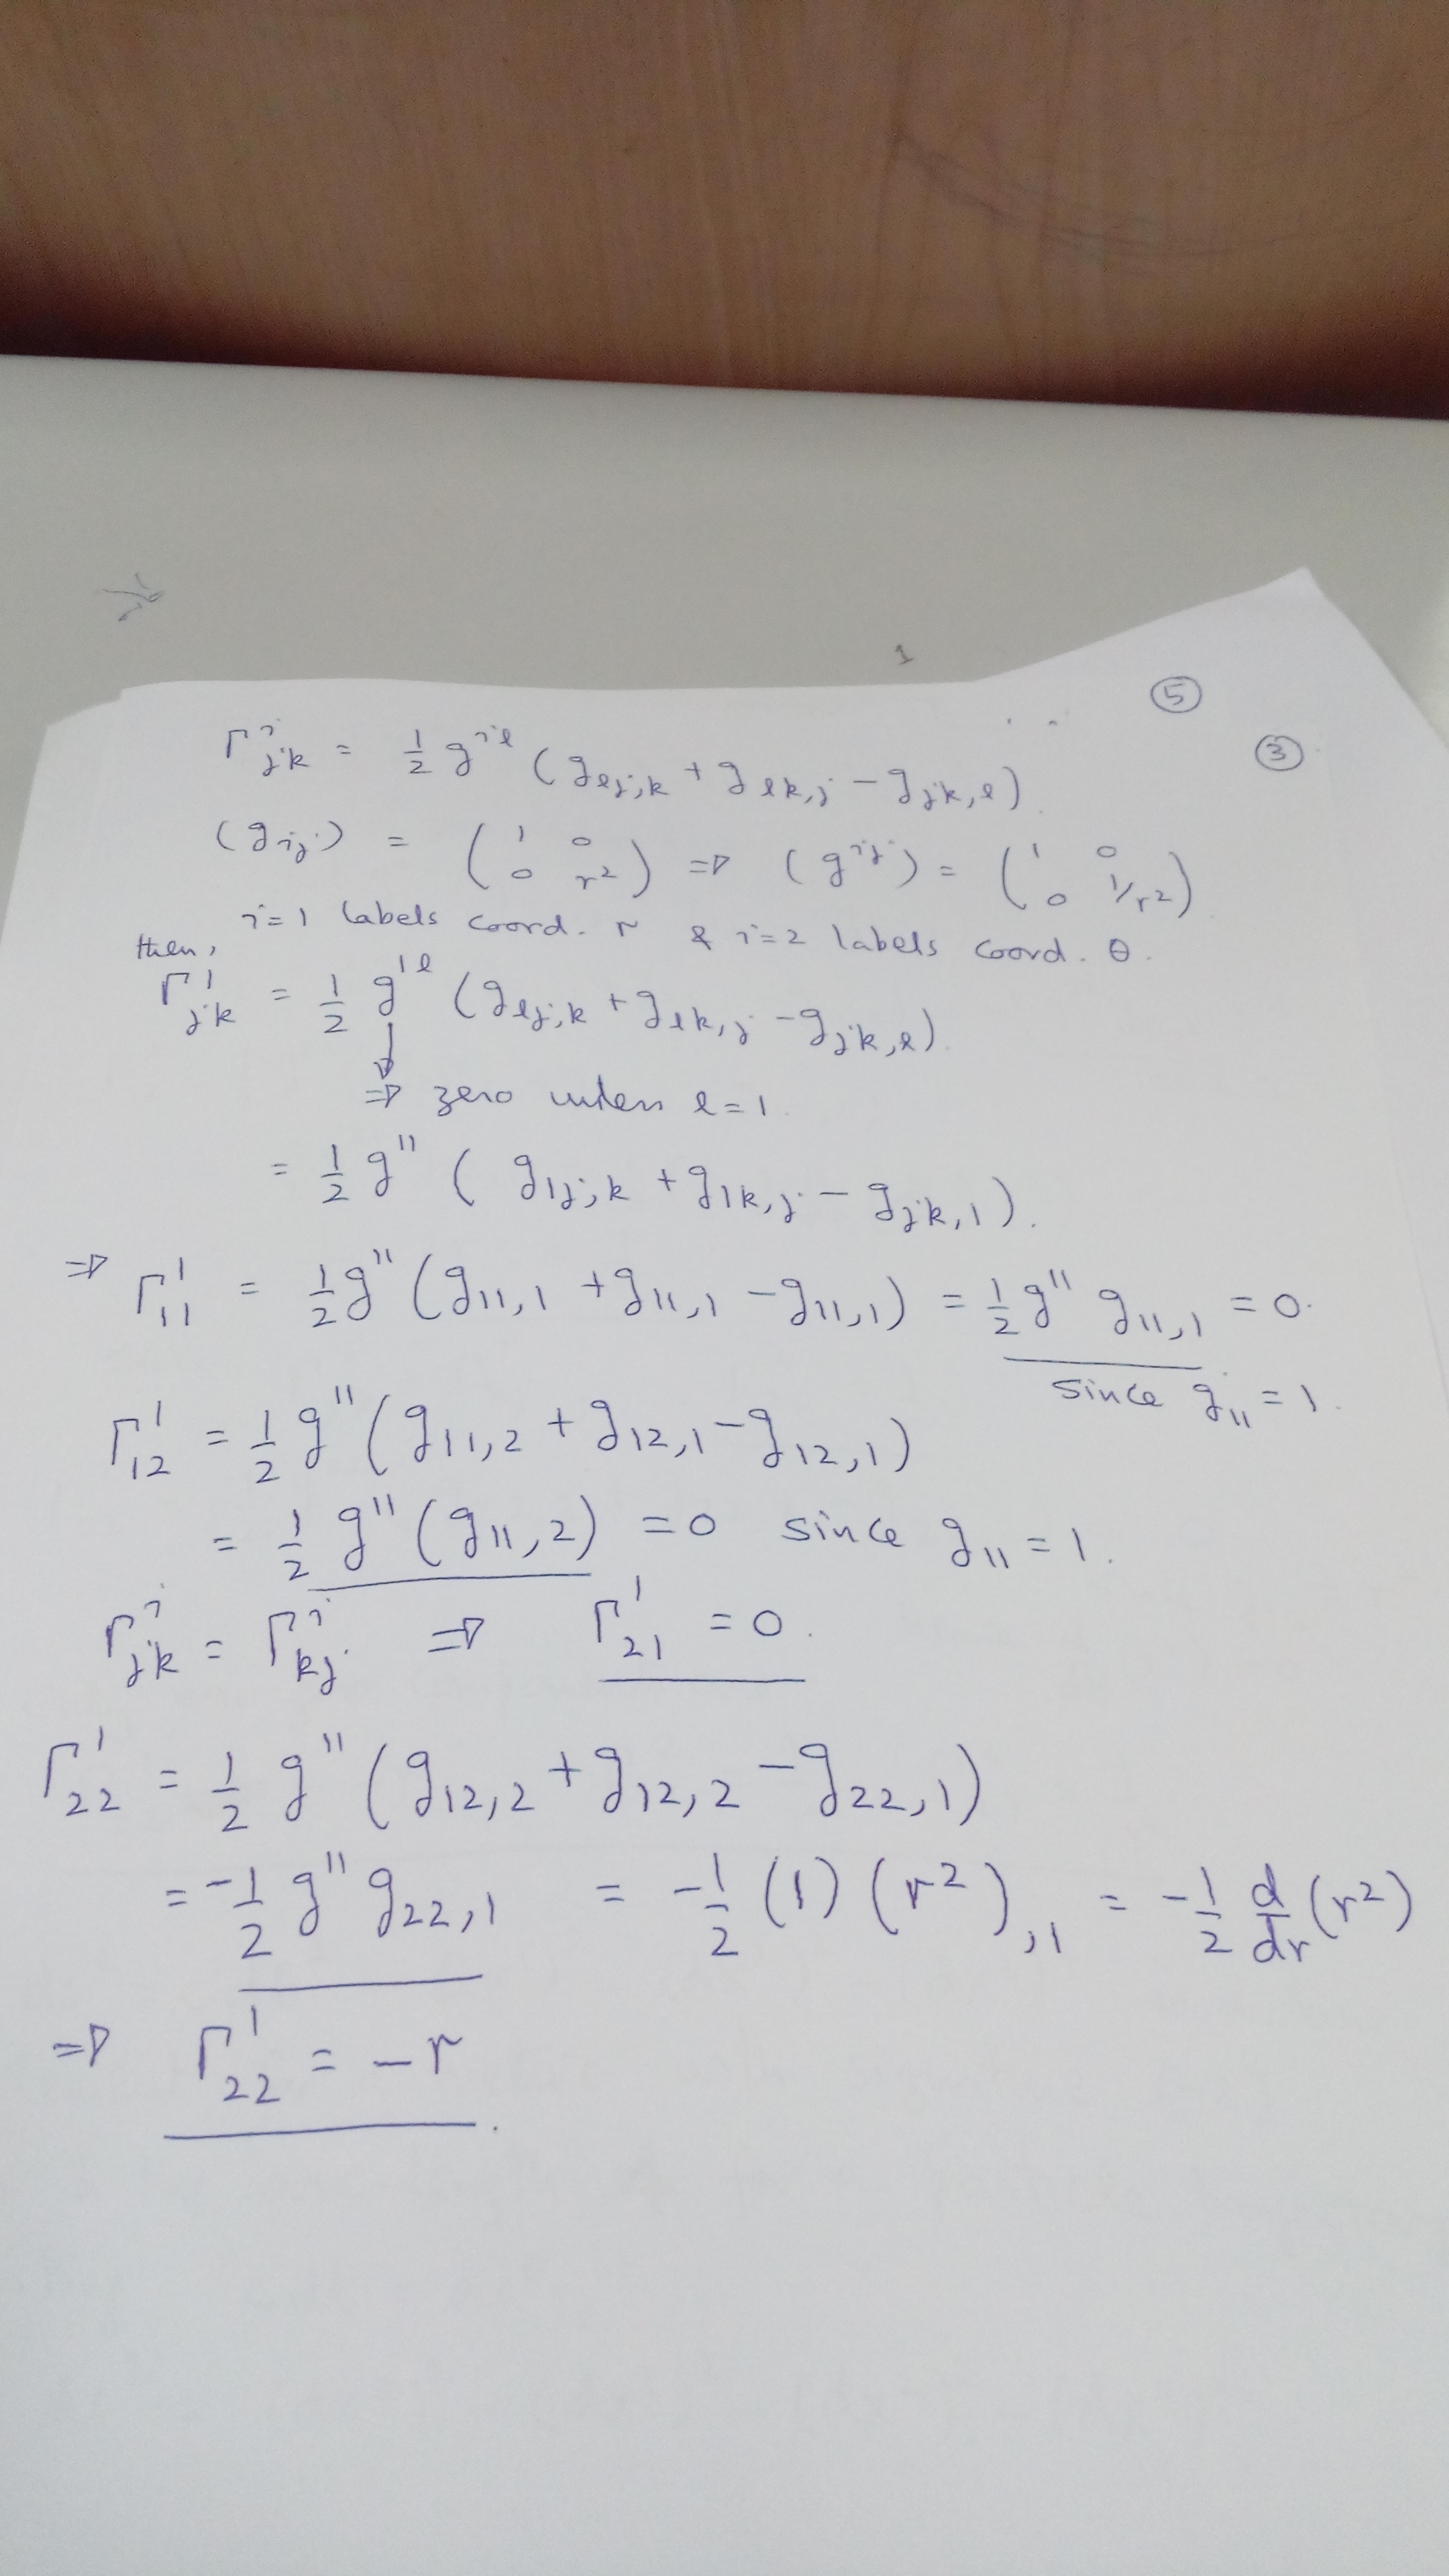 1
⑤
③
Γ^i_{jk} = 1/2 g^{il} (g_{lj,k} + g_{lk,j} − g_{jk,l}).
(g_{ij}) = (1 0 ; 0 r²) ⇒ (g^{ij}) = (1 0 ; 0 1/r²).
i=1 labels coord. r & i=2 labels coord. θ.
then,
Γ^1_{jk} = 1/2 g^{1l} (g_{lj,k} + g_{lk,j} − g_{jk,l}).
↓
⇒ zero when l=1.
= 1/2 g^{11} (g_{1j,k} + g_{1k,j} − g_{jk,1}).
⇒ Γ^1_{11} = 1/2 g^{11} (g_{11,1} + g_{11,1} − g_{11,1}) = 1/2 g^{11} g_{11,1} = 0.
since g_{11} = 1.
Γ^1_{12} = 1/2 g^{11} (g_{11,2} + g_{12,1} − g_{12,1})
= 1/2 g^{11} (g_{11,2}) = 0 since g_{11} = 1.
Γ^i_{jk} = Γ^i_{kj} ⇒ Γ^1_{21} = 0.
Γ^1_{22} = 1/2 g^{11} (g_{12,2} + g_{12,2} − g_{22,1})
= −1/2 g^{11} g_{22,1} = −1/2 (1) (r²)_{,1} = −1/2 d/dr (r²)
⇒ Γ^1_{22} = −r.